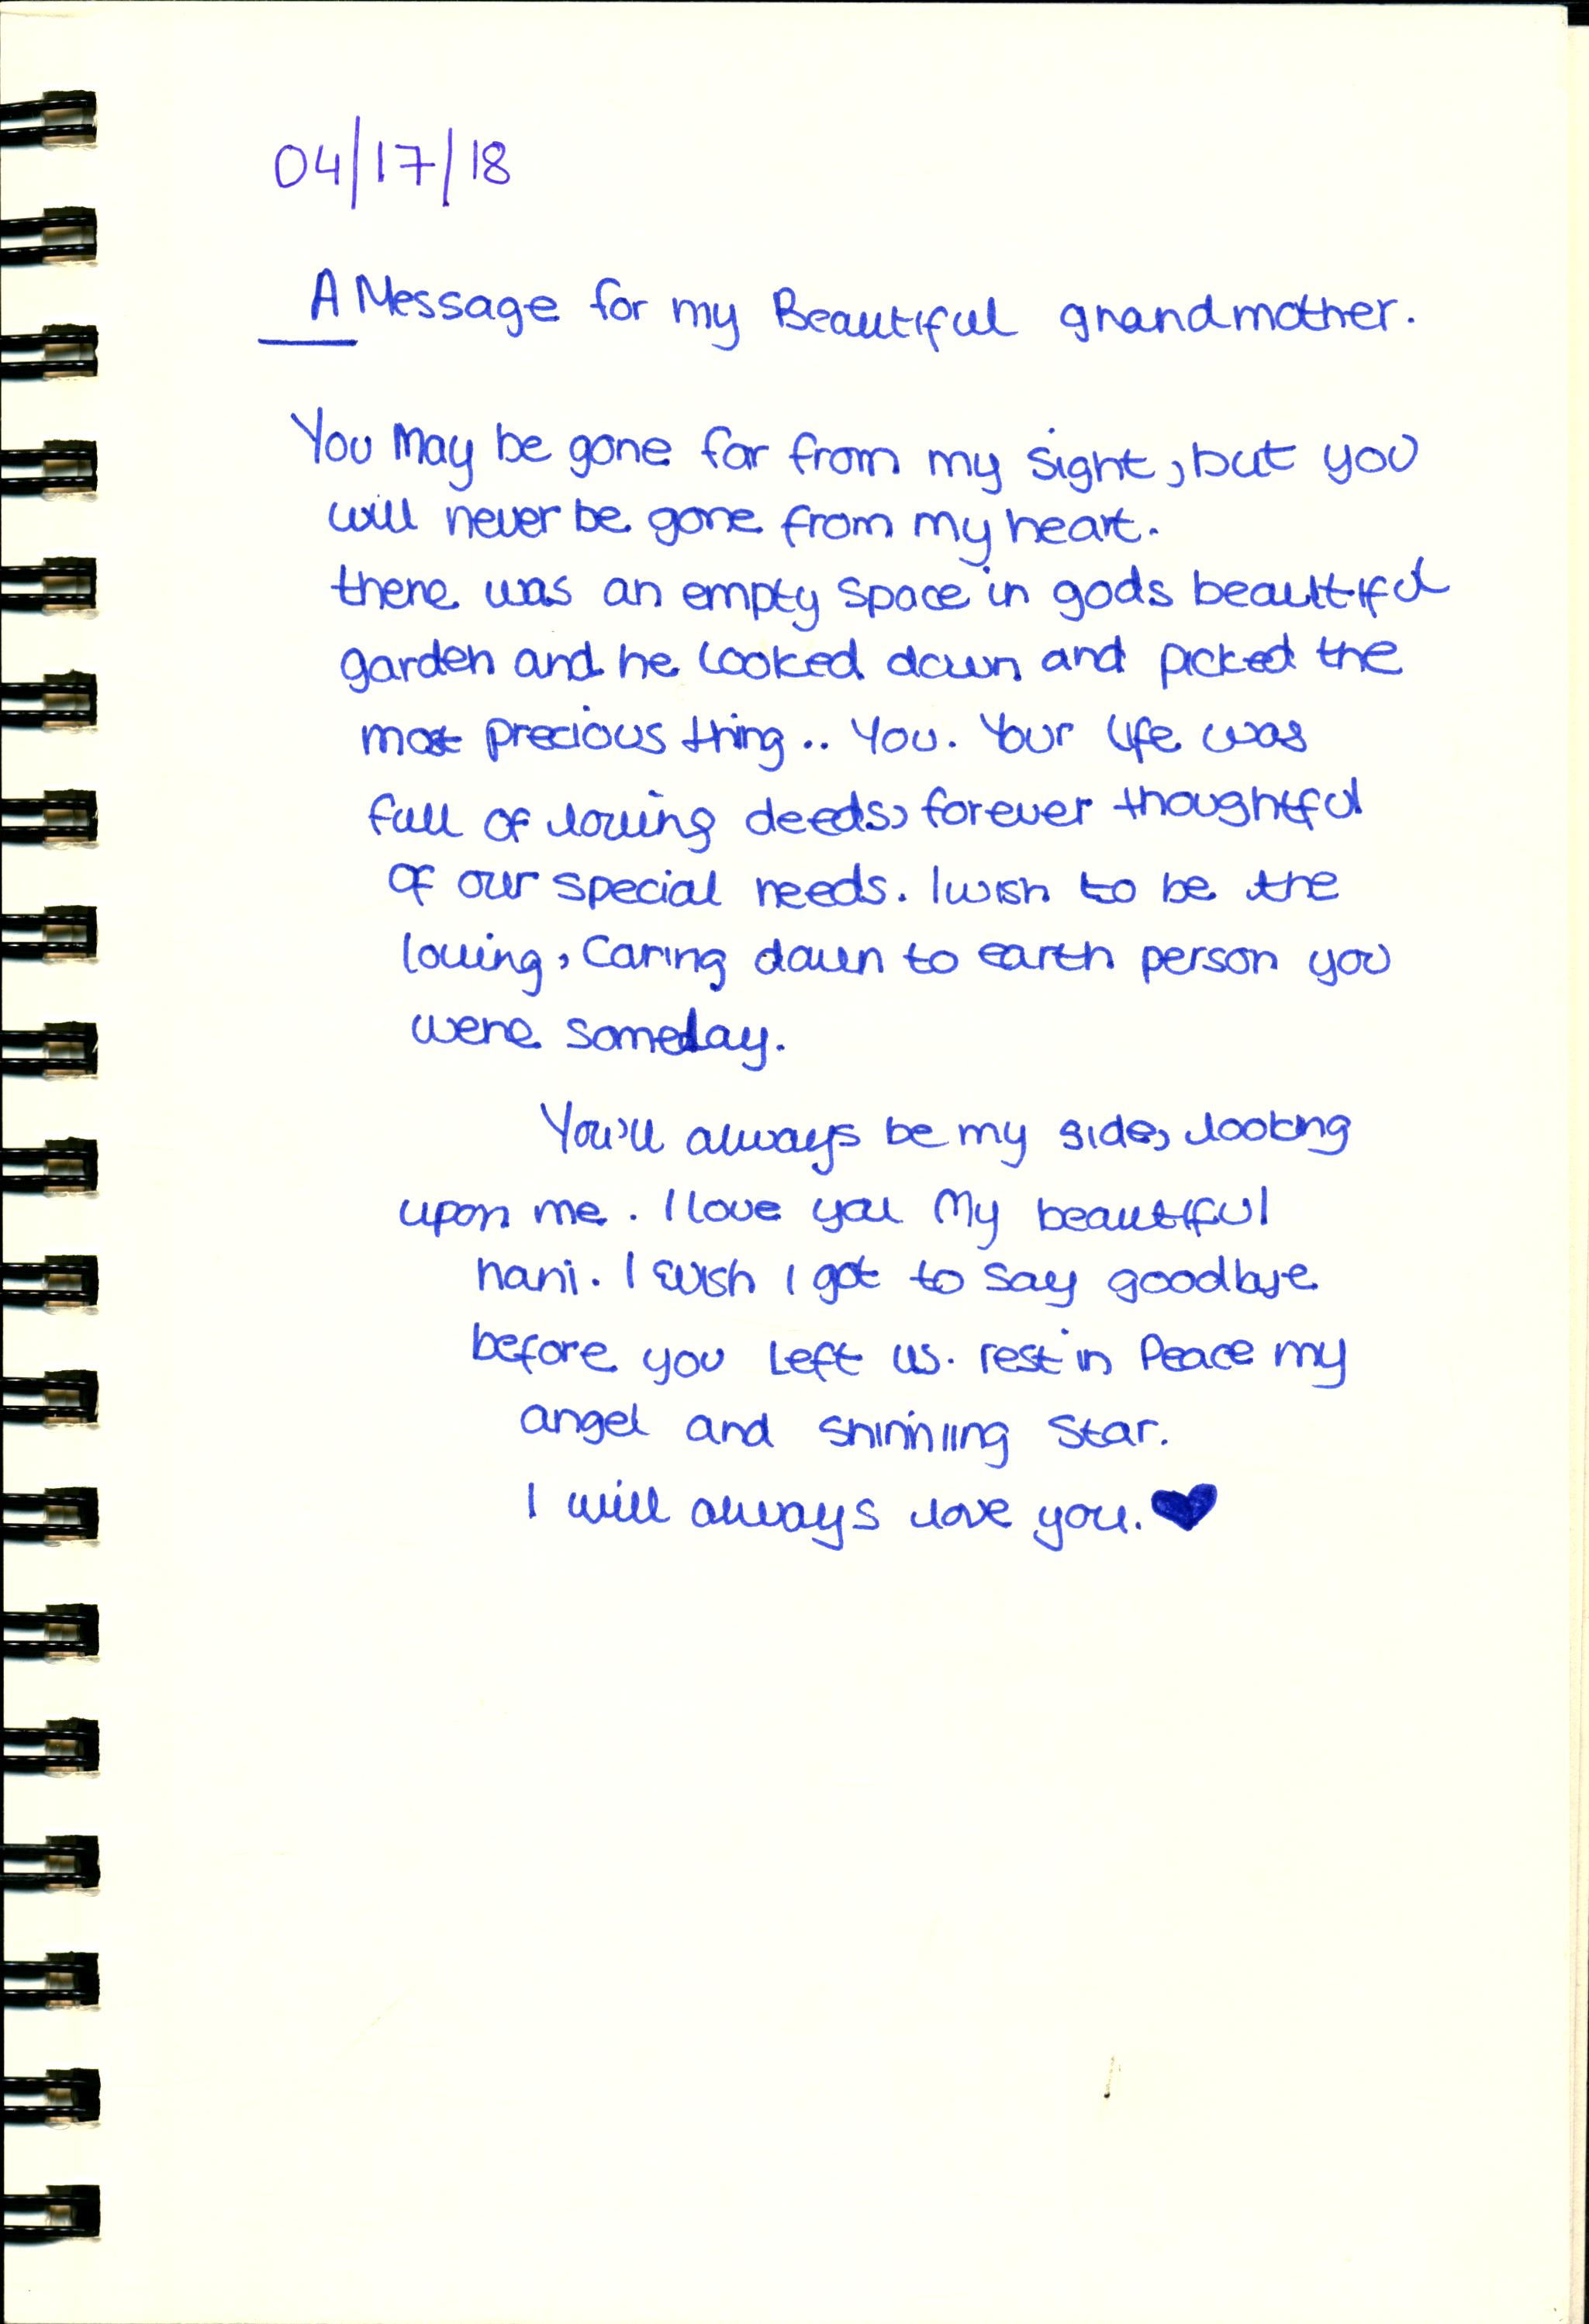 04/17/18
A Message for my Beautiful grandmother.
You may be gone far from my sight, but you
will never be gone from my heart.
there was an empty space in gods beautiful
garden and he looked down and picked the
most precious thing.. You. Your life was
full of loving deeds, forever thoughtful
of our special needs. I wish to be the
loving, caring down to earth person you
were someday.
You'll always be my side, looking
upon me. I love you My beautiful
nani. I wish I got to say goodbye
before you left us. rest in Peace my
angel and shinning star.
I will always love you. ♥